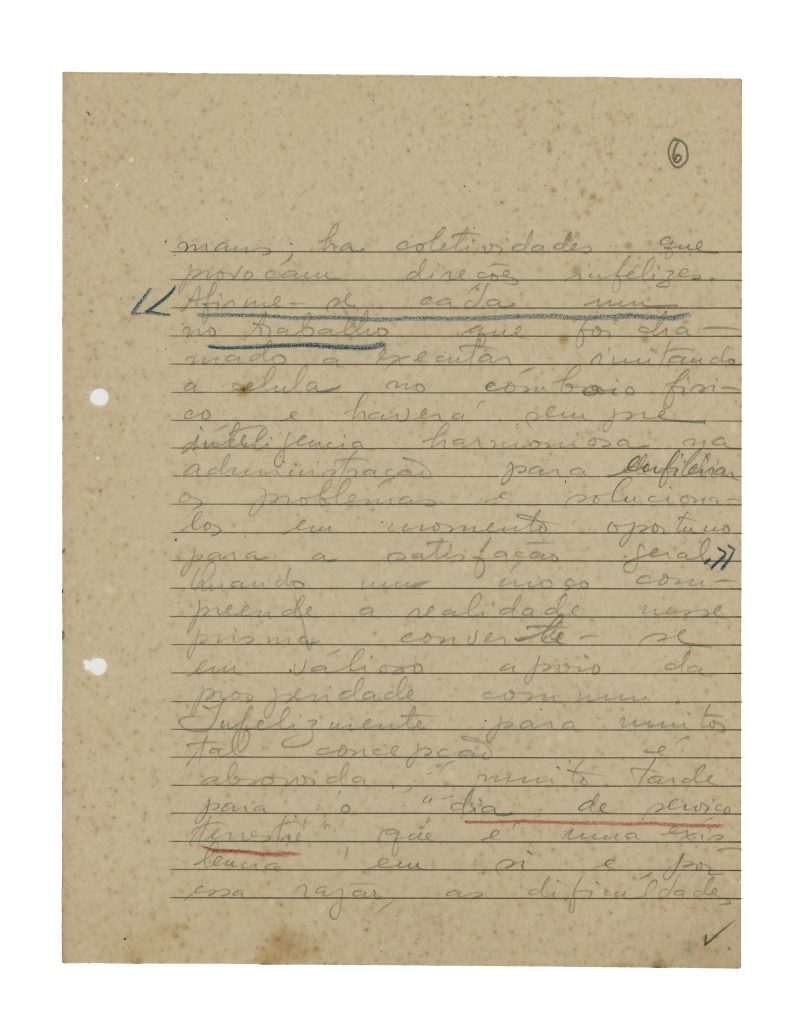 6
maus; ha coletividades que
provocam direções infelizes.
Afirme-se cada um
no trabalho que foi cha-
mado a executar imitando
a celula no comboio fisi-
co e haverá sempre
inteligencia harmoniosa na
administração para enfileirar
os problemas e soluciona-
los em momento oportuno
para a satisfação geral.»
Quando um moço com-
preende a realidade nesse
prisma converte-se
em válioso apoio da
prosperidade commum.
Infelizmente para muitos
tal concepção é
absorvida, muito tarde
para o "dia de serviço
terrestre" que é uma exis-
tencia em si e por
essa razão, as dificuldades